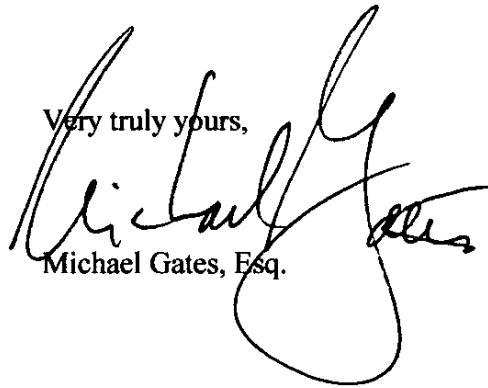 Very truly yours,
Michael Gates
Michael Gates, Esq.